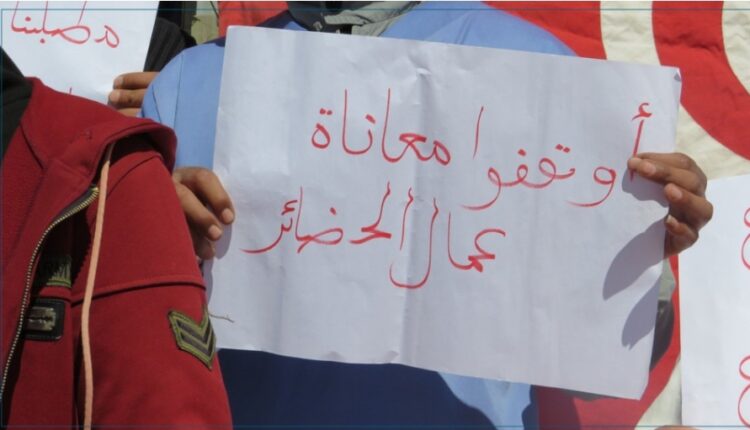 مطلبنا
أوقفوا معاناة
عمال الحضائر